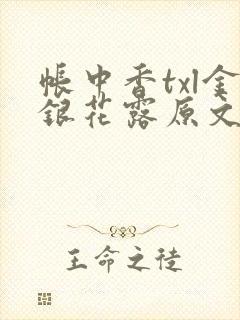 帳中香txl金
銀花露原文
王命之徒